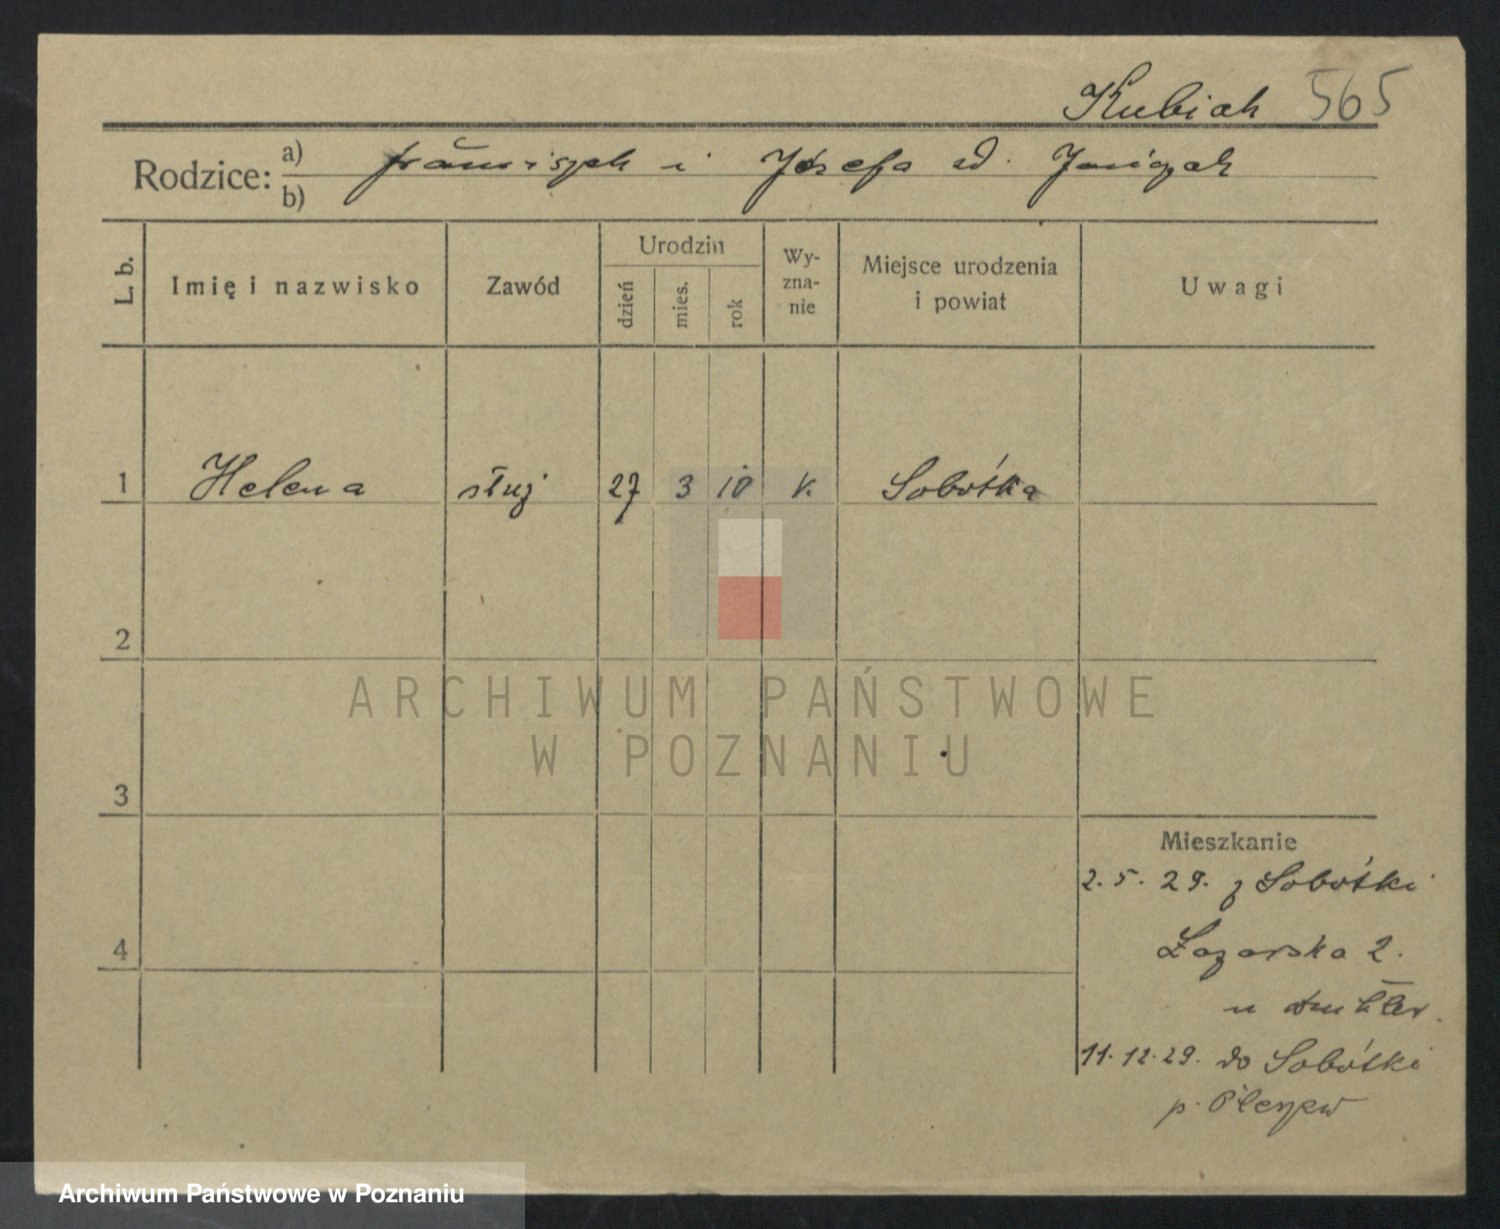 Kubiak 565
Rodzice: a) b) Franciszek i Józefa zd. Janiczak
L. b.
Imię i nazwisko
Zawód
Urodzin
dzień
mies.
rok
Wy-
zna-
nie
Miejsce urodzenia
i powiat
Uwagi
1 Helena służ 27 3 10 k. Sobótka
2
ARCHIWUM PAŃSTWOWE
W POZNANIU
3
Mieszkanie
2. 5. 29. z Sobótki
4
Łazarska 2.
u
11. 12. 29. do Sobótki
p. Pleszew
Archiwum Państwowe w Poznaniu